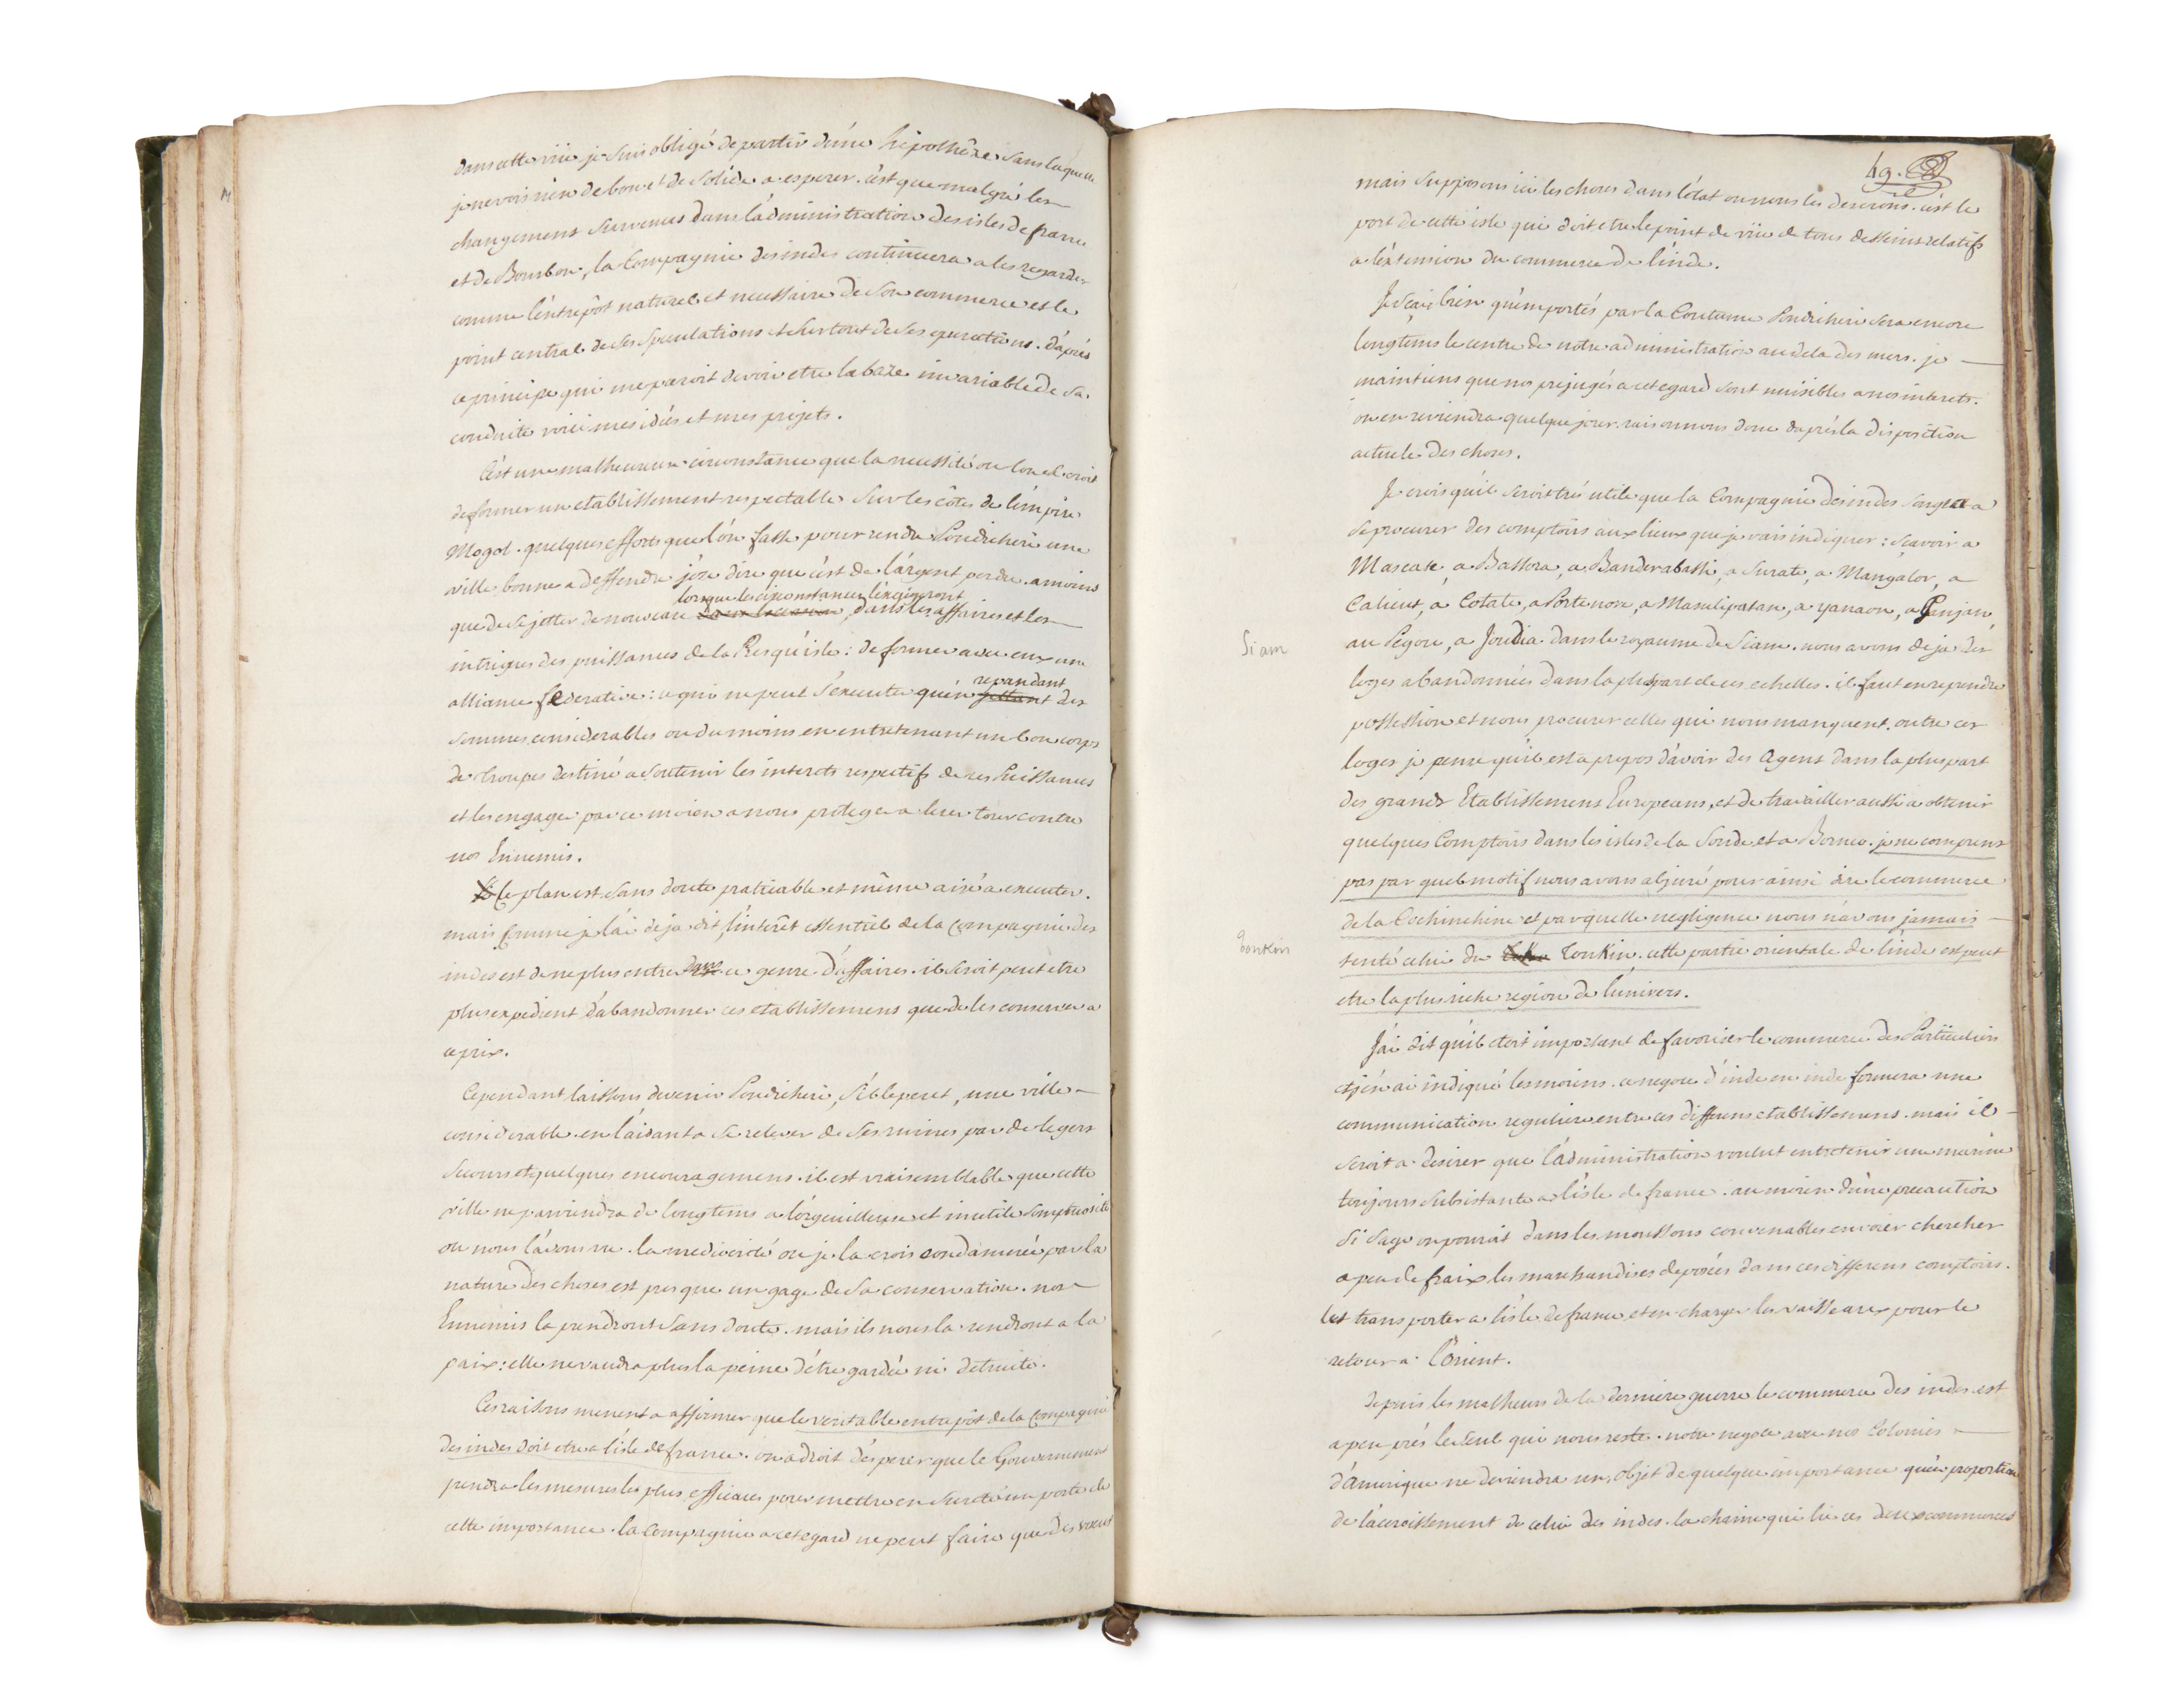 dans cette vüe je suis obligé de partir d'une hipothése sans laquelle
je ne vois rien de bon et de solide a esperer. c'est que malgré les
changemens survenus dans l'administration des isles de france
et de Bourbon, la Compagnie des indes continuera a les regarder
comme l'entrepôt naturel et necessaire de son commerce et le
point central de ses speculations et surtout de ses operations. d'aprés
ce principe qui me paroit devoir etre la baze invariable de sa
conduite voici mes idées et mes projets.
C'est une malheureuse circonstance que la necessité ou l'on se croit
de former un etablissement respectable sur les côtes de l'empire
Mogol. quelques efforts que l'on fasse pour rendre Pondicheri une
ville bonne a deffendre j'ose dire que c'est de l'argent perdu. a moins
lorsque les circonstances l'exigeront
que de se jetter de nouveau dans les affaires et les
intrigues des puissances de la Presqu'isle: de former avec eux une
repandant
alliance féderative: ce qui ne peut s'executer qu'en jettant des
sommes considerables ou du moins en entretenant un bon corps
de troupes destiné a soutenir les interets respectifs de ces Puissances
et les engager par ce moien a nous proteger a leur tour contre
nos Ennemis.
Ce plan est sans doute praticable et même aisé a executer.
mais comme je l'ai deja dit, l'intérêt essentiel de la Compagnie des
indes est de ne plus entrer dans ce genre d'affaires. il seroit peut etre
plus expedient d'abandonner ces etablissemens que de les conserver a
ce prix.
Cependant laissons devenir Pondicheri, s'il le peut, une ville
considerable en l'aidant a se relever de ses ruines par de legers
secours et quelques encouragemens. il est vraisemblable que cette
ville ne parviendra de longtems a l'orgeuilleuse et inutile somptuosité
ou nous l'avons vu. la mediocrité ou je la crois condamnée par la
nature des choses est presque un gage de sa conservation. nos
Ennemis la prendront sans doute. mais ils nous la rendront a la
paix: elle ne vaudra plus la peine d'être gardée ni detruite.
Ces raisons menent a affirmer que le veritable entrepôt de la Compagnie
des indes doit etre a l'isle de france. on a droit d'esperer que le Gouvernement
prendra les mesures les plus efficaces pour mettre en sureté un poste de
cette importance. la Compagnie a cet egard ne peut faire que des voeux
49.
mais supposons ici les choses dans l'état ou nous les desirons. c'est le
port de cette isle qui doit etre le point de vüe de tous desseins relatifs
a l'extension du commerce de l'inde.
Je sçais bien qu'emportés par la Coutume Pondicheri sera encore
longtems le centre de notre administration au dela des mers. je
maintiens que nos prejugés a cet egard sont nuisibles a nos interets.
on en reviendra quelque jour. raisonnons donc d'aprés la disposition
actuele des choses.
Je crois qu'il seroit trés utile que la Compagnie des indes songea a
se procurer des comptoirs aux lieux que je vais indiquer: scavoir a
Mascate, a Bassora, a Banderabassi, a Surate, a Mangalor, a
Calicut, a Colate, a Portenove, a Masulipatan, a yanaon, a Ganjan,
Siam
au Pégou, a Joudia dans le royaume de Siam. nous avons deja des
loges abandonnées dans la pluspart de ces echelles. il faut en reprendre
possession et nous procurer celles qui nous manquent. outre ces
loges je pense qu'il est a propos d'avoir des Agens dans la pluspart
des grands Etablissemens Europeans, et de travailler aussi a obtenir
quelques Comptoirs dans les isles de la Sonde et a Borneo. je ne comprens
pas par quel motif nous avons abjuré pour ainsi dire le commerce
de la Cochinchine et par quelle negligence nous n'avons jamais
tonkin
tenté celui du Tonkin. cette partie orientale de l'inde est peut
etre la plus riche region de l'univers.
J'ai dit qu'il etoit important de favoriser le commerce des Particuliers
et j'en ai indiqué les moiens. ce negoce d'inde en inde formera une
communication reguliere entre ces differens etablissemens. mais il
seroit a desirer que l'administration voulut entretenir une marine
toujours subsistante a l'isle de france. au moien d'une precaution
si sage on pourait dans les moussons convenables envoier chercher
a peu de fraix les marchandises deposées dans ces differens comptoirs.
les transporter a l'isle de france, et en charger les vaisseaux pour le
retour a l'Orient.
depuis les malheurs de la derniere guerre le commerce des indes est
a peu prés le seul qui nous reste. notre negoce avec nos Colonies
d'Amerique ne deviendra un objet de quelque importance qu'en proportion
de l'acroissement de celui des indes. la chaine qui lie ces deux commerces